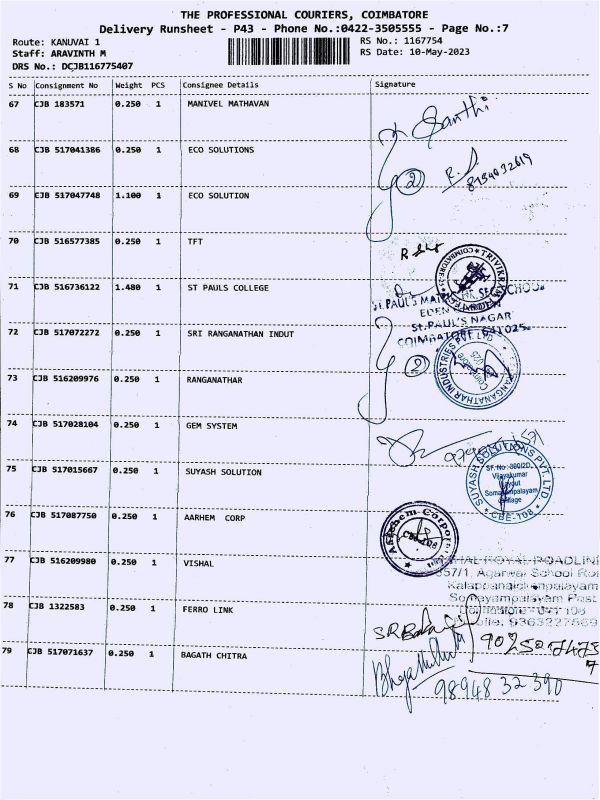 THE PROFESSIONAL COURIERS, COIMBATORE
Delivery Runsheet - P43 - Phone No.:0422-3505555 - Page No.:7
Route: KANUVAI 1
RS No.: 1167754
Staff: ARAVINTH M
RS Date: 10-May-2023
DRS No.: DCJB116775407
S No Consignment No Weight PCS Consignee Details Signature
67 CJB 183571 0.250 1 MANIVEL MATHAVAN
Santhi
68 CJB 517041386 0.250 1 ECO SOLUTIONS
2
69 CJB 517047748 1.100 1 ECO SOLUTION
70 CJB 516577385 0.250 1 TFT
71 CJB 516736122 1.480 1 ST PAULS COLLEGE
ST.PAUL'S
ST.PAUL'S NAGAR
COIMBATORE 641025
72 CJB 517072272 0.250 1 SRI RANGANATHAN INDUT
RANGANATHAR INDUSTRIES PVT. LTD
2
73 CJB 516209976 0.250 1 RANGANATHAR
74 CJB 517028104 0.250 1 GEM SYSTEM
75 CJB 517015667 0.250 1 SUYASH SOLUTION
SUYASH SOLUTIONS PVT. LTD
Vijayakumar
Layout
Somayampalayam
Village
CBE-108
76 CJB 517087750 0.250 1 AARHEM CORP
CBE-108
77 CJB 516209980 0.250 1 VISHAL
ROYAL ROADLIN
Agarwal School
Somayampalayam Post
78 CJB 1322583 0.250 1 FERRO LINK
79 CJB 517071637 0.250 1 BAGATH CHITRA
98948 32 390